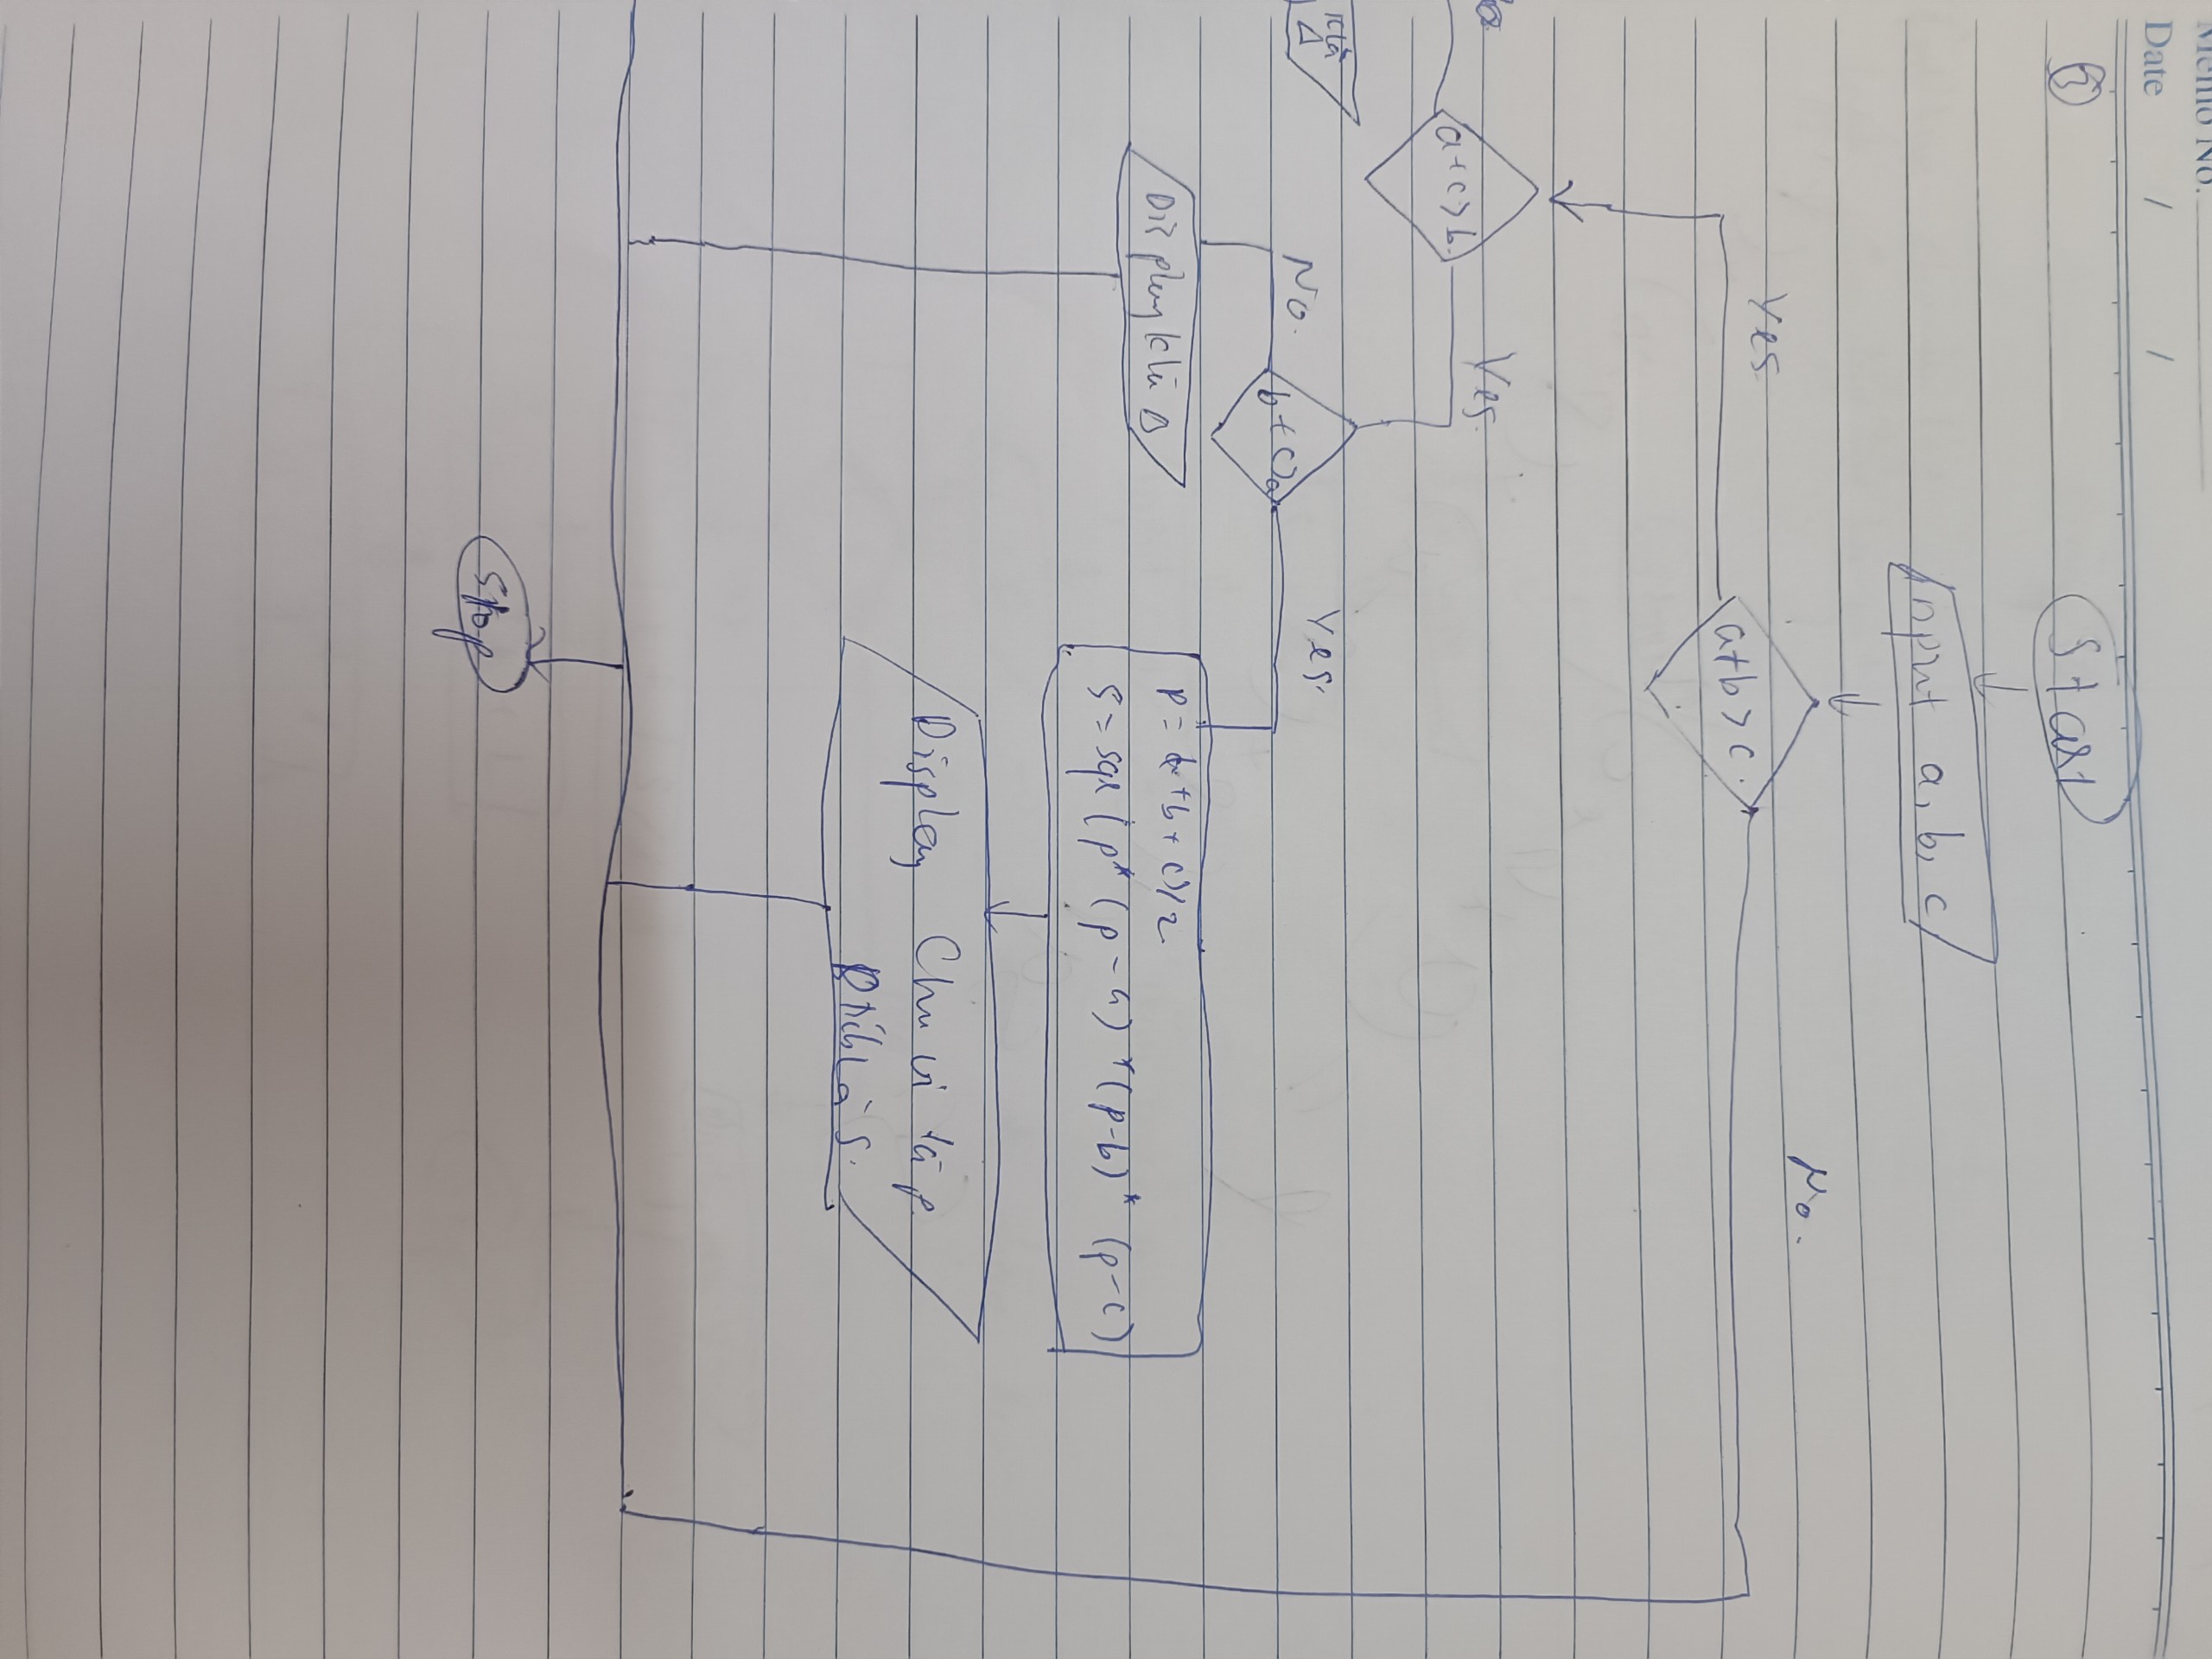 Memo No.
Date / /
5
Start
Input a, b, c
a+b > c.
Yes.
No.
a+c > b.
Yes.
b+c>a
No.
Yes.
Display k là Δ
p = (a+b+c)/2
s = sqr (p* (p-a) *(p-b)* (p-c)
Display Chu vi là p
Dtích là s.
Stop